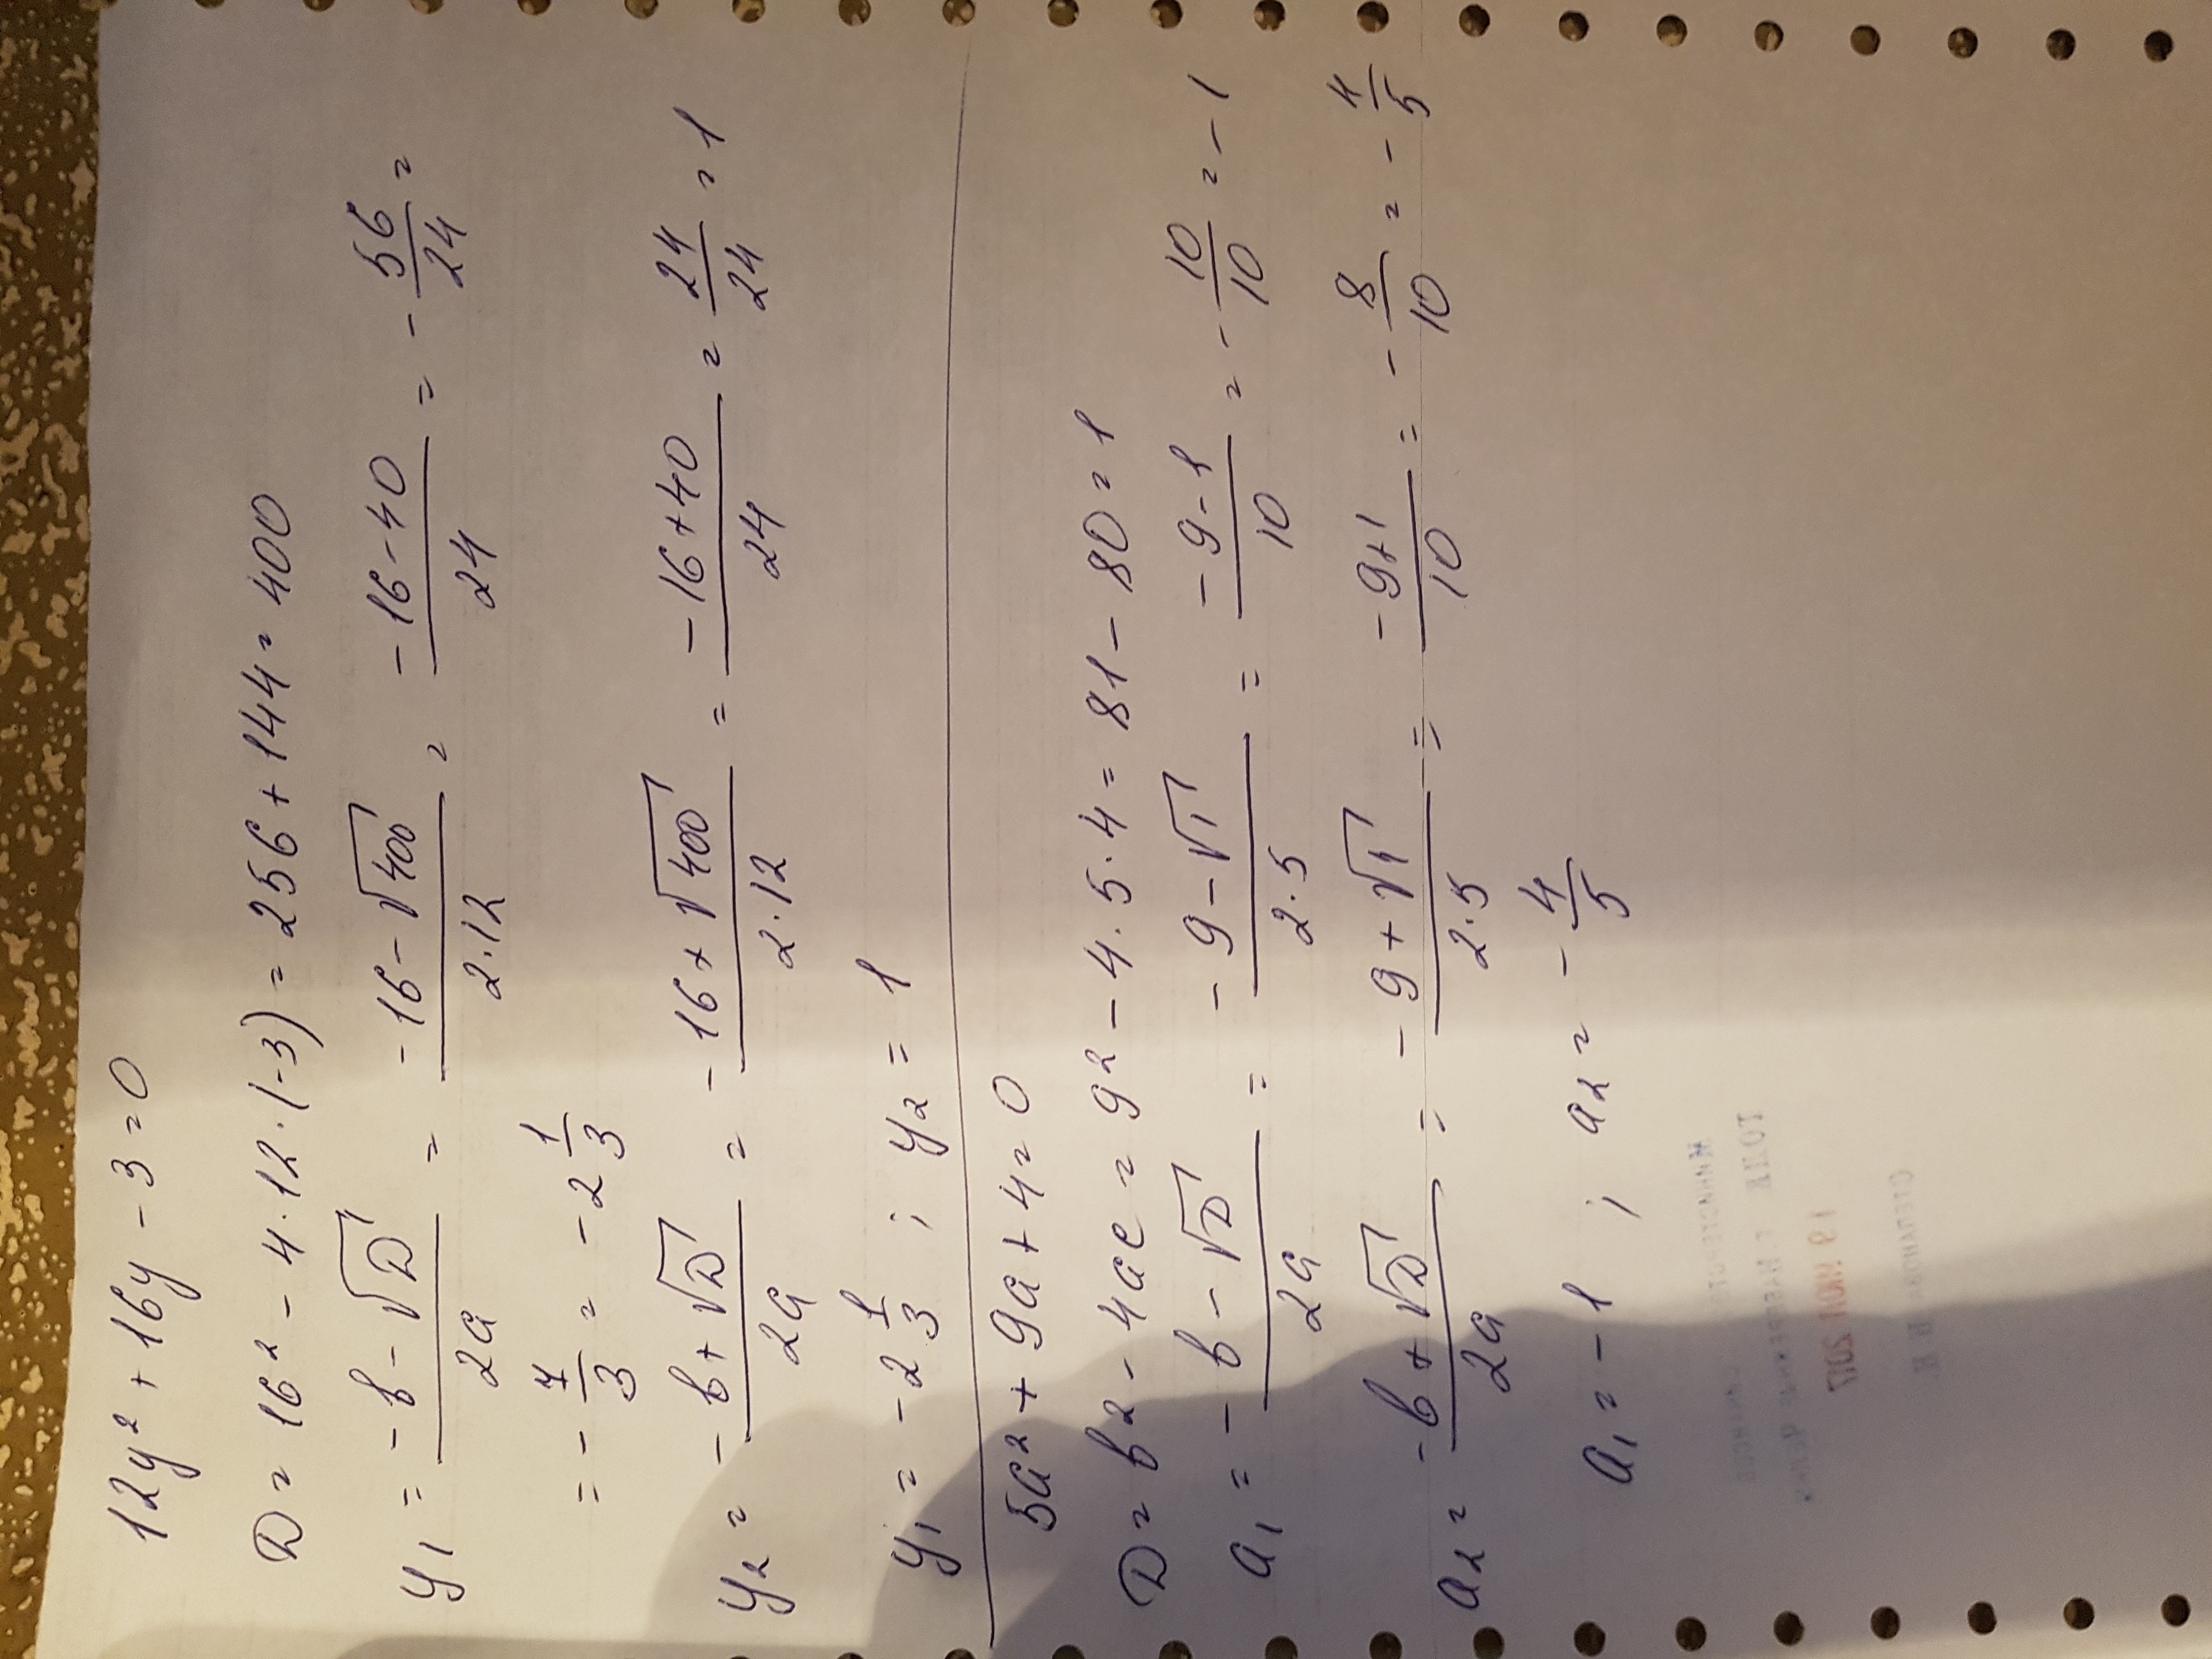 12y² + 16y - 3 = 0
D = 16² - 4·12·(-3) = 256 + 144 = 400
y₁ = (-b - √D)/2a = (-16 - √400)/2·12 = (-16 - 40)/24 = - 56/24 =
= - 7/3 = -2 1/3
y₂ = (-b + √D)/2a = (-16 + √400)/2·12 = (-16 + 40)/24 = 24/24 = 1
y₁ = -2 1/3 ; y₂ = 1
5a² + 9a + 4 = 0
D = b² - 4ac = 9² - 4·5·4 = 81 - 80 = 1
a₁ = (-b - √D)/2a = (-9 - √1)/2·5 = (-9 - 1)/10 = - 10/10 = -1
a₂ = (-b + √D)/2a = (-9 + √1)/2·5 = (-9 + 1)/10 = - 8/10 = - 4/5
a₁ = -1 ; a₂ = - 4/5